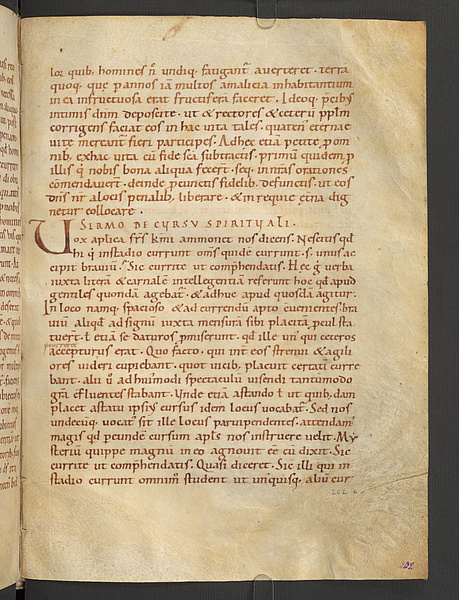 lor quib; homines n̄ undiq; fatigant̄ averteret. terra
quoq; quę p annos iā multos amalicia inhabitantium
in ea infructuosa erat fructifera faceret. Ideoq; peibꝰ
intimis dnm deposcite. ut & rectores & ceterū pp̄lm
corrigens faciat eos in hac vita tales. quaten̄ eternae
vitę mereant̄ fieri participes. Adhęc etiā petite p om
nib; ex hac vita cū fide sc̄a subtractis. primū quidem p
illis q̄ nobis bona aliqua fecer̄t. seq; in nr̄as orationes
comendaver̄t. deinde p cunctis fidelib; defunctis. ut eos
dn̄s nr̄ a locis penalib; liberare. & in requie et̄na dig
netur collocare.
SERMO DE CVRSV SPIRITVALI.
Vox aplica fr̄s k̄mi ammonet nos dicens. Nescitis qd̄
hi q̄ in stadio currunt om̄s quidē currunt. s; unus ac
cipit braviū. Sic currite ut cōp̄hendatis. Hęc g̊ verba
iuxta literā & carnalē intellegentiā referunt hoc qd̄ apud
gentiles quondā agebat̄. & adhuc apud quosdā agitur.
In loco namq; spacioso & ad currendū apto cuvenientes bra
viū aliqd̄ ad signū iuxta mensurā sibi placitā peul sta
tuer̄t. ł etiā se daturos p̄miserunt. qd̄ ille un̄ qui ceteros
accepturus erat. Quo facto. qui int̄ eos strenui & agili
ores videri cupiebant. quot vicib; placuit certati curre
bant. alii ū ad huiꝰmodi spectaculū visendi tantūmodo
gr̄a c̄fluentes stabant. Unde etiā astando ł ut quib;dam
placet a statu ipsiꝰ cursus idem locus vocabat̄. Sed nos
undecūq; vocatꝰ sit ille locus parvipendentes. attendam̄
magis qd̄ p eundē cursum apl̄s nos instruere velit. My
steriū quippe magnū in eo agnovit ee cū dixit. Sic
currite ut cōp̄hendatis. Quasi diceret. Sic illi qui in
stadio currunt omnim̊ student ut un̄quisq; aliū cur
202
202